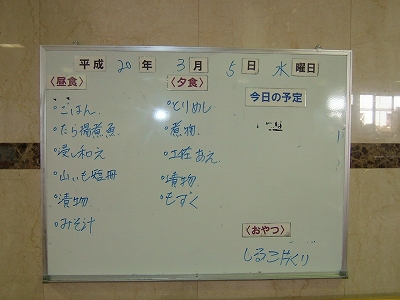 平成 20 年 3 月 5 日 水 曜日
〈昼食〉
・ごはん
・たら揚煮魚
・浸し和え
・山いも短冊
・漬物
・みそ汁
〈夕食〉
・とりめし
・煮物
・土佐あえ
・漬物
・もずく
今日の予定
〈おやつ〉
しるこ片くり